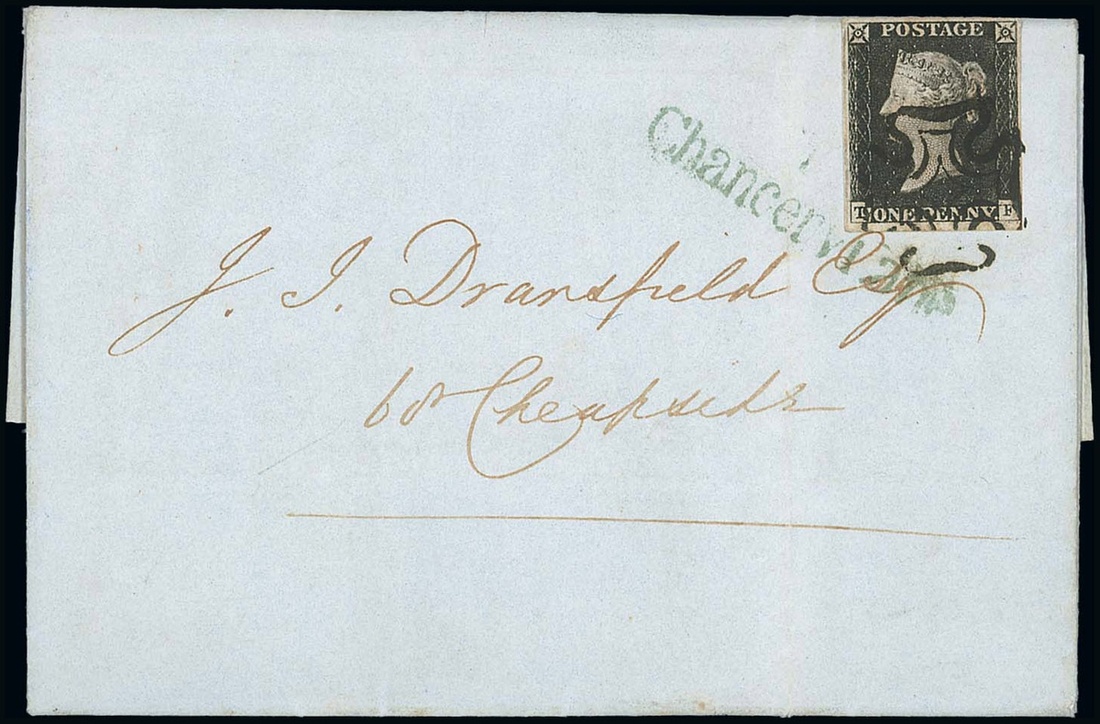 POSTAGE
T ONE PENNY F
Chancery Lane
J. J. Dransfield Esqr
60 Cheapside